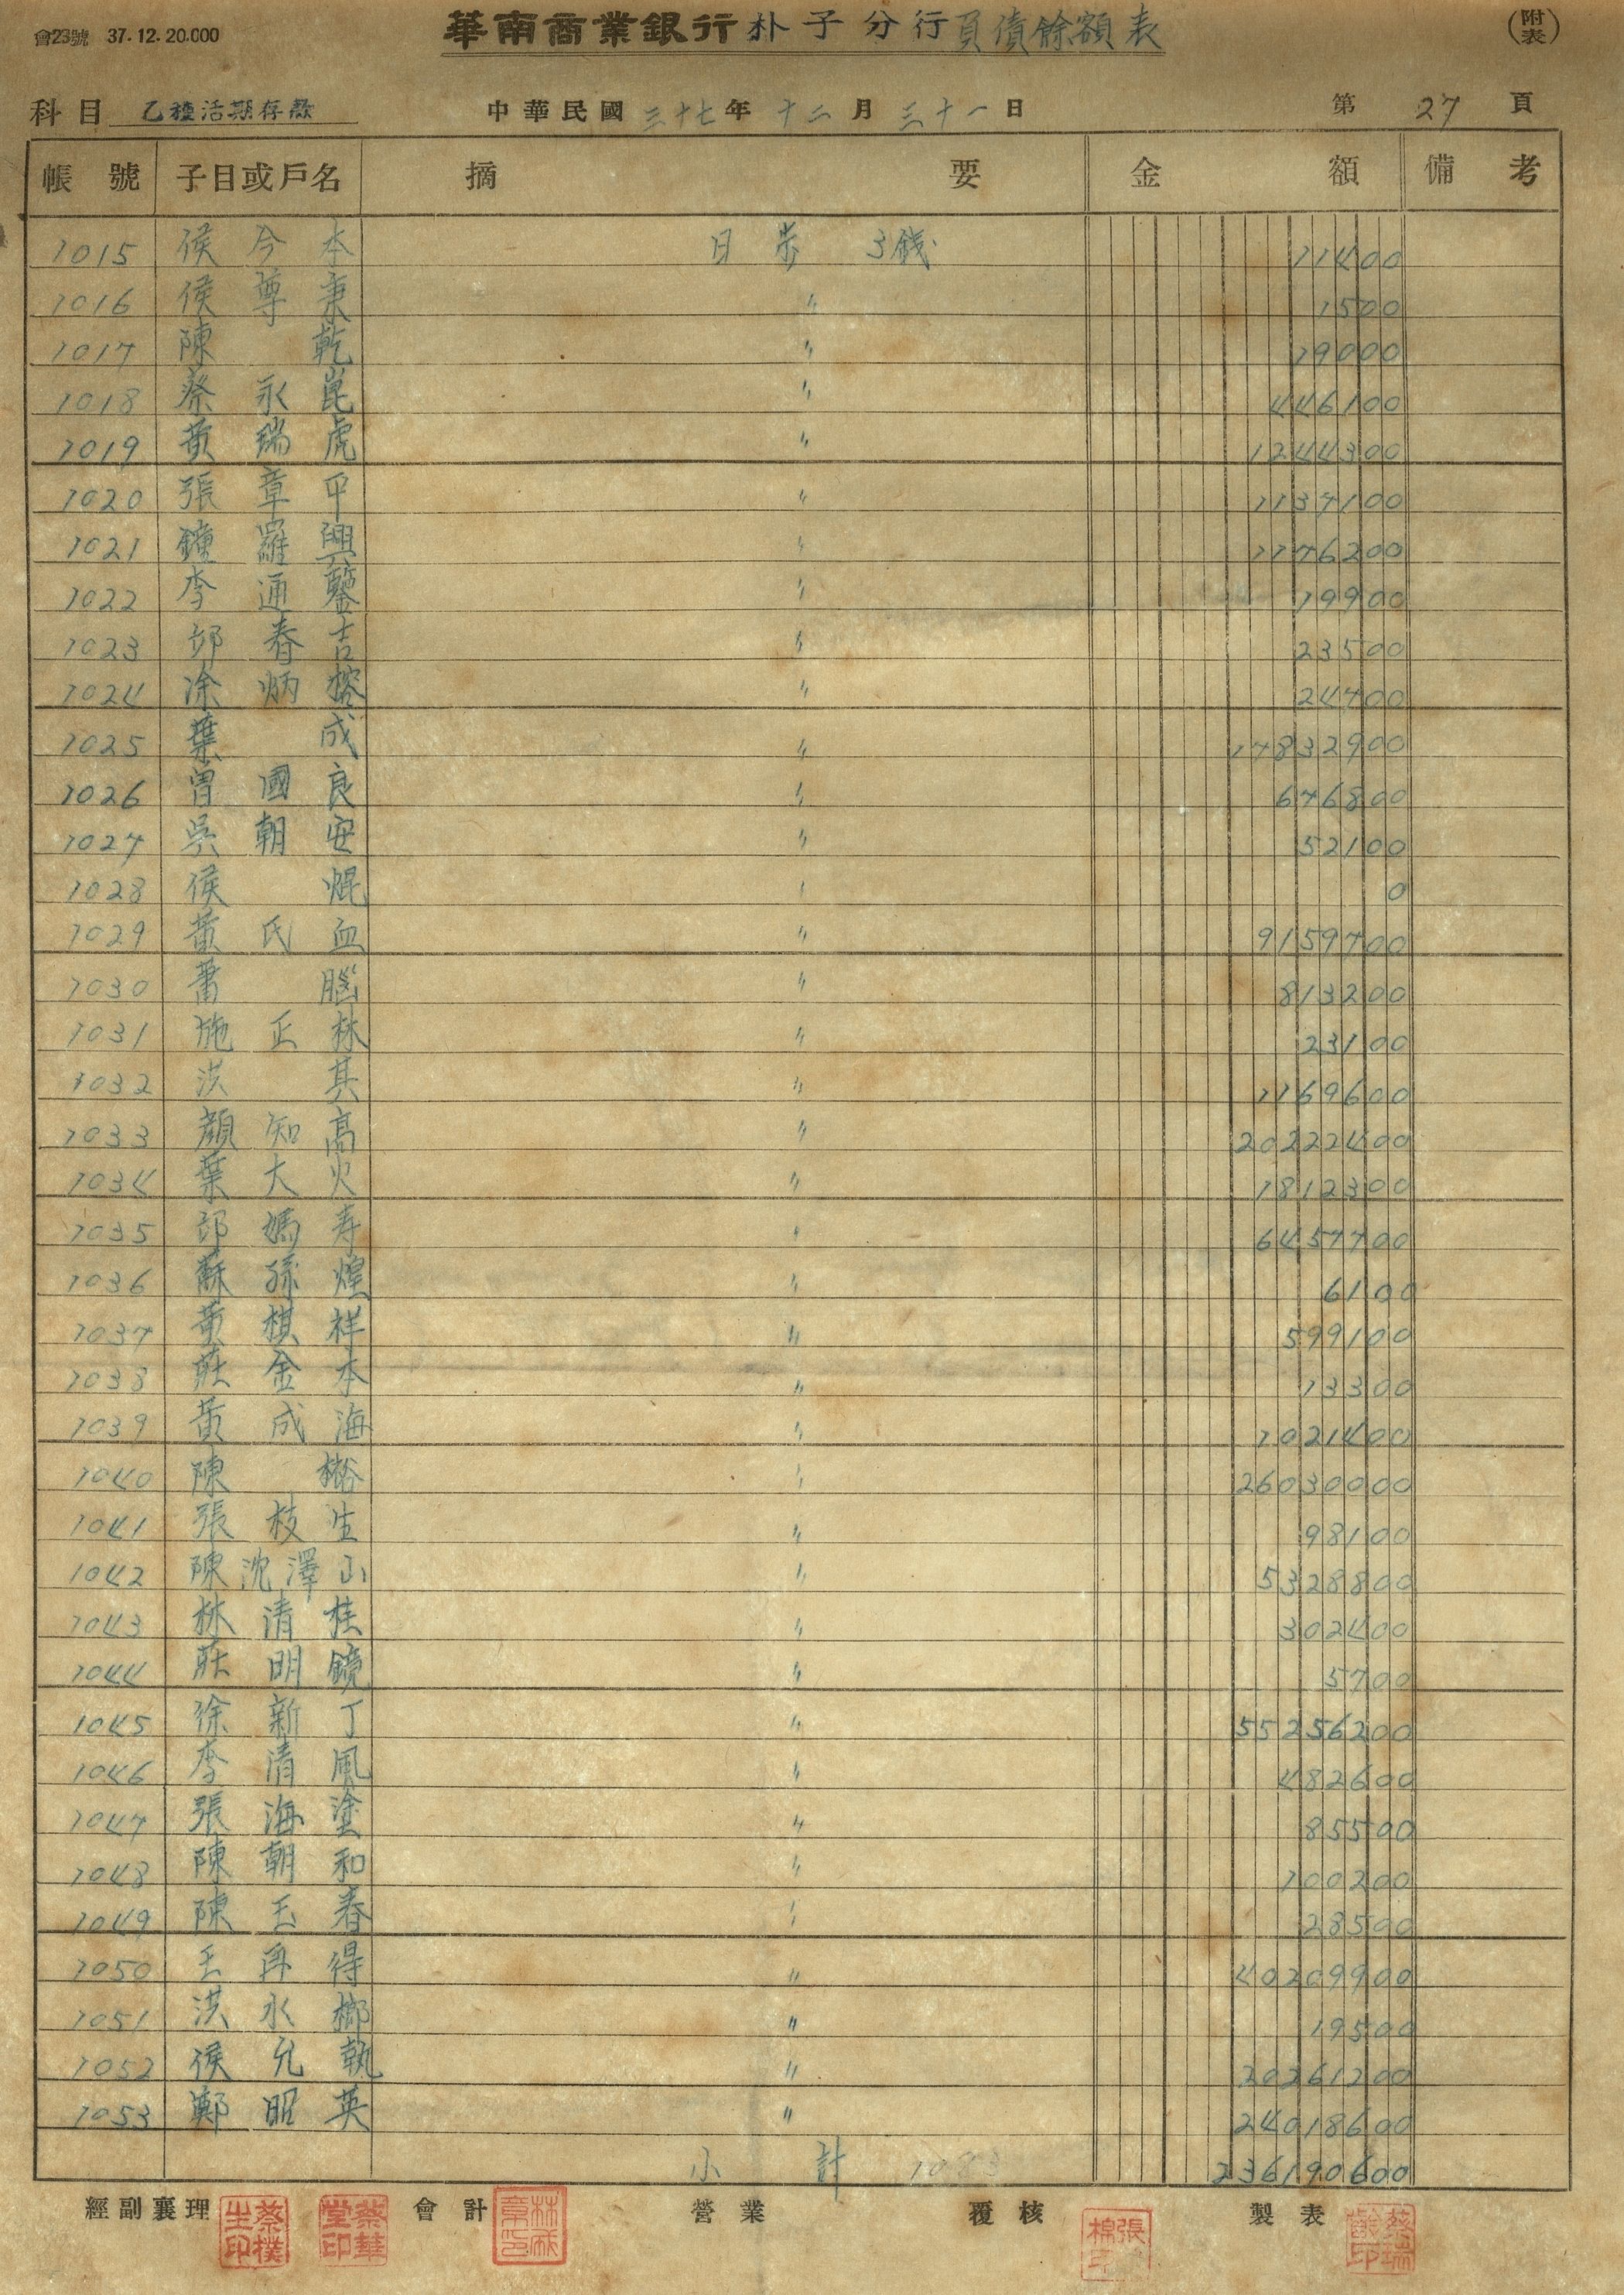 會23號 37.12.20.000
華南商業銀行朴子分行負債餘額表
(附表)
科目 乙種活期存款 中華民國三十七年十二月三十一日 第27頁
帳號 子目或戶名 摘要 金額 備考
1015 侯今本 日歩 3錢 11400
1016 侯尊秉 〃 1500
1017 陳乾 〃 19000
1018 蔡永崑 〃 446100
1019 黃瑞虎 〃 1244300
1020 張章甲 〃 1137100
1021 鐘羅興 〃 1176200
1022 李通鑒 〃 19900
1023 邱春吉 〃 23500
1024 涂炳榕 〃 24700
1025 葉成 〃 17832900
1026 曾國良 〃 676800
1027 吳朝安 〃 52100
1028 侯焜 〃 0
1029 黃氏血 〃 9159700
1030 蕭腦 〃 813200
1031 施正林 〃 23100
1032 洪其 〃 1169600
1033 顏知高 〃 20222400
1034 葉大火 〃 1812300
1035 邱媽寿 〃 6457700
1036 蘇孫煌 〃 6100
1037 黃棋祥 〃 599100
1038 莊金本 〃 13300
1039 黃成海 〃 1021400
1040 陳 〃 26030000
1041 張枝生 〃 98100
1042 陳沈澤山 〃 5328800
1043 林清桂 〃 302400
1044 莊明鏡 〃 5700
1045 徐新丁 〃 55256200
1046 李清風 〃 482600
1047 張海塗 〃 85500
1048 陳朝和 〃 100200
1049 陳玉春 〃 28500
1050 王再得 〃 40209900
1051 洪水榔 〃 19500
1052 侯允執 〃 20261200
1053 鄭昭英 〃 24018600
小計 1083 236190600
經副襄理 蔡樸生印 蔡華堂印 會計 林成章印 營業 覆核 張棉印 製表 蔡瑞印